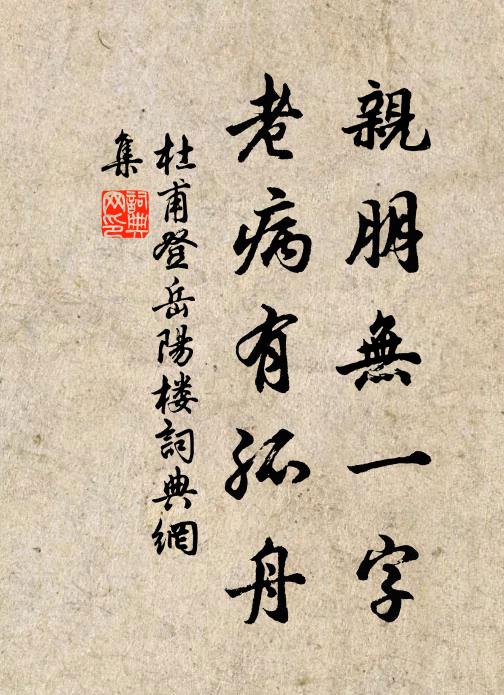 親朋無一字
老病有孤舟
杜甫登岳陽楼詞典網
集
詞典
网印